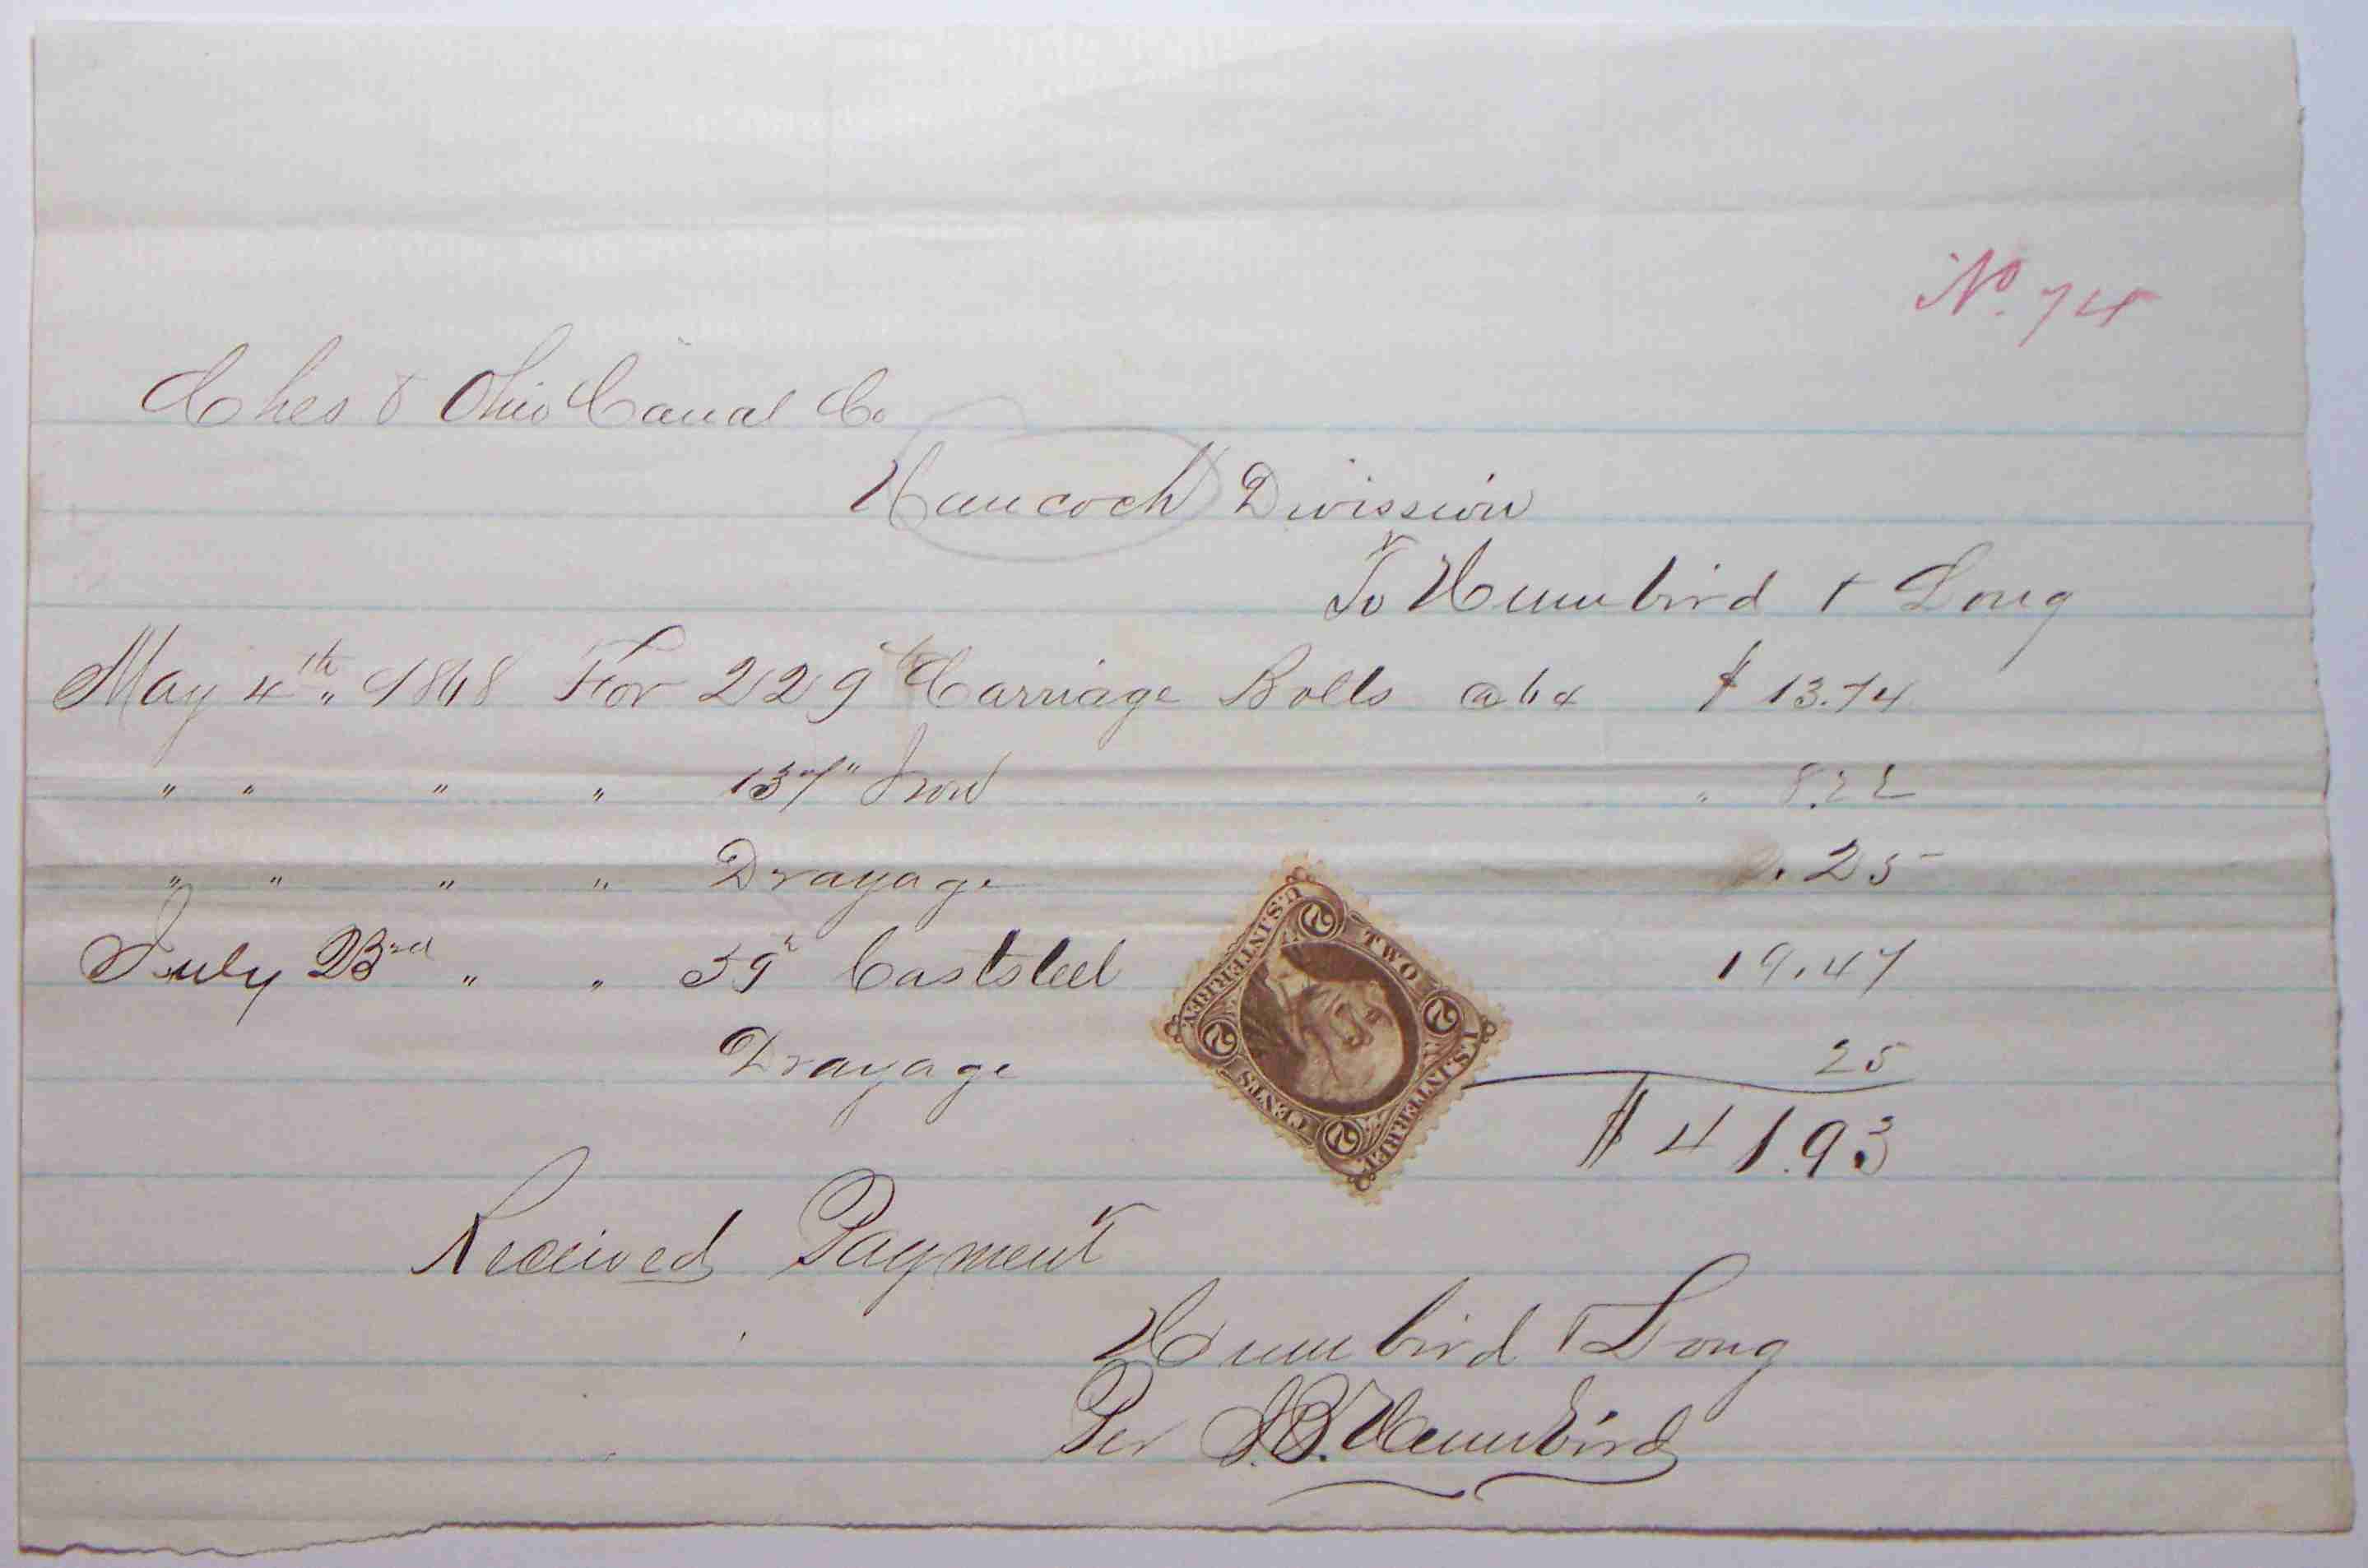 No. 74
Ches & Ohio Canal Co
Hancock Division
To Humbird & Long
May 4th " 1868 For 229 lb Carriage Bolts @ 6¢ $ 13.74
" " " " 137 " Iron " 8.22
" " " " Drayage .25
July 23rd " " 59 Caststeel 19.47
Drayage 25
$ 41.93
U.S. INTER. REV.
TWO
U.S. INTER. REV.
CENTS
2 2 2 2
Received Payment
Humbird & Long
Per J.B. Humbird